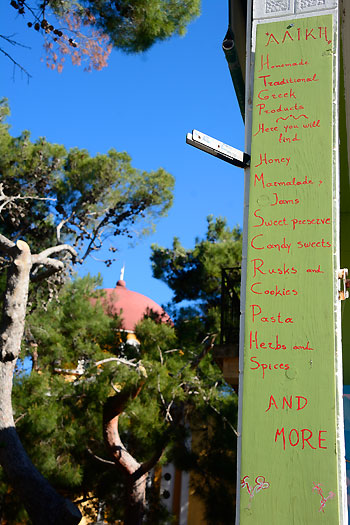 ΛΑΪΚΗ
Homemade
Traditional
Greek
Products
Here you will
find
Honey
Marmalade,
Jams
Sweet preserve
Candy sweets
Rusks and
Cookies
Pasta
Herbs and
Spices
AND
MORE